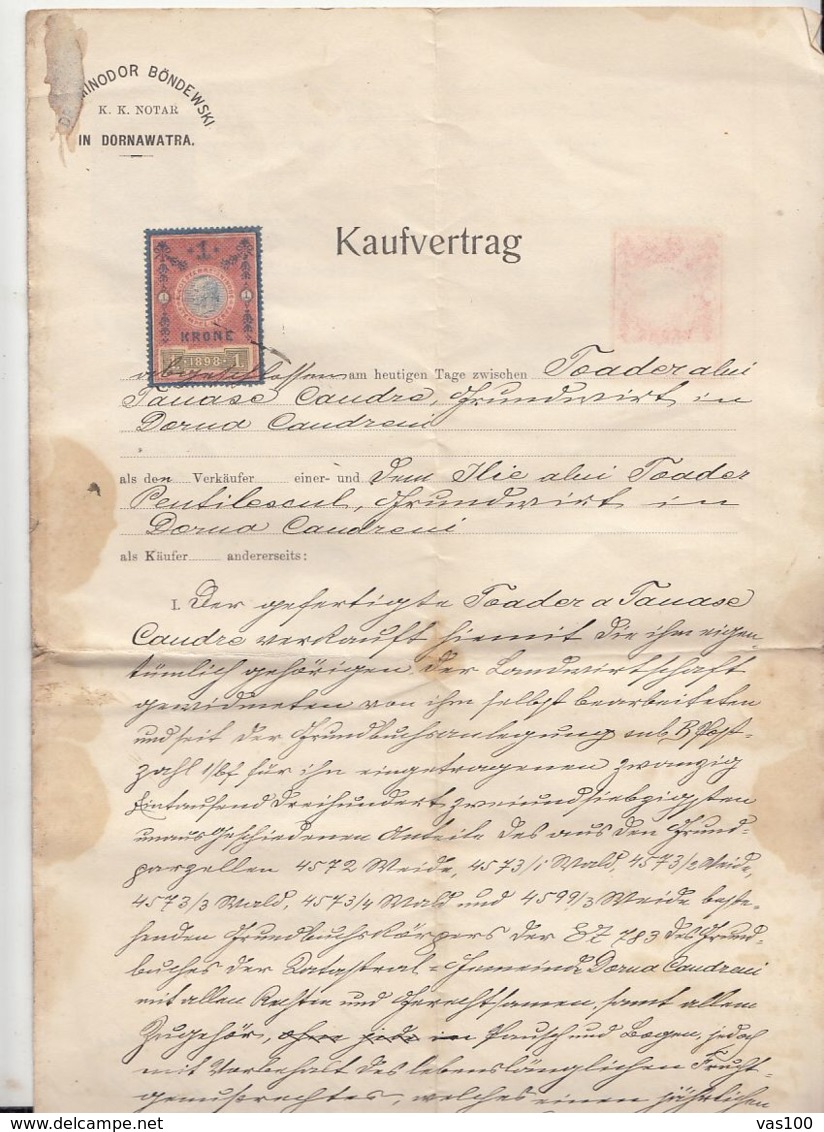 MINODOR BÖNDEWSKI
K. K. NOTAR
IN DORNAWATRA.
Kaufvertrag
1
1 1
KRONE
1898 1
abgeschlossen am heutigen Tage zwischen Toader alui
Tanase Candre, Grundwirt in
Dorna Candreni
als den Verkäufer einer- und dem Ilie alui Toader
Pentilescul, Grundwirt in
Dorna Candreni
als Käufer andererseits:
I. Der gefertigte Toader a Tanase
Candre verkauft hiemit die ihm eigen-
tümlich gehörigen der Landwirtschaft
gewidmeten von ihm selbst bearbeiteten
und seit der Grundbuchsanlegung sub Post-
zahl für ihn eingetragenen zwanzig
Eintausend dreihundert zweiundsiebzigsten
unausgeschiedenen Anteile des aus den Grund-
parzellen 4572 Weide, 4573/1 Wald, 4573/2 Weide,
4573/3 Wald, 4573/4 Wald und 4599/3 Weide beste-
henden Grundbuchskörpers der EZ 783 des Grund-
buches der Katastral-Gemeinde Dorna Candreni
mit allen Rechten und Gerechtsamen, samt allem
Zugehör, in Pausch und Bogen, jedoch
mit Vorbehalt des lebenslänglichen Frucht-
genussrechtes, welches einen jährlichen
vas100